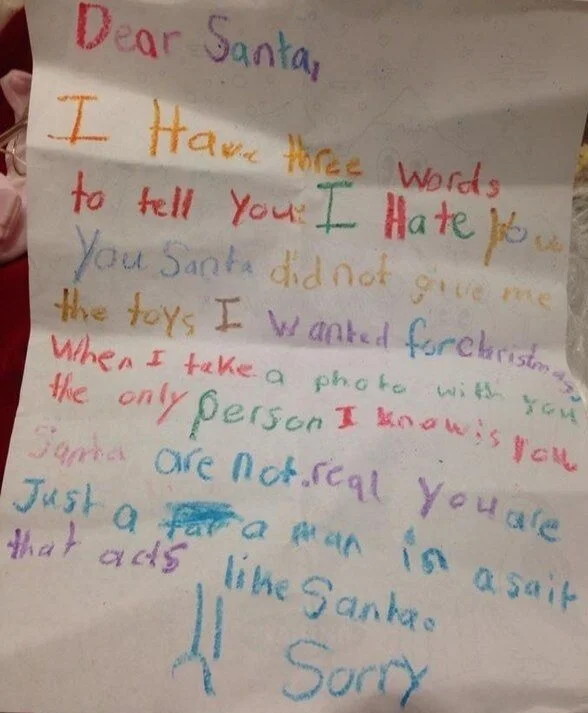 Dear Santa,
I Have three words
to tell you: I Hate you
You Santa did not give me
the toys I wanted for christmas
When I take a photo with you
the only person I know is you
Santa are not.real you are
Just a a man in a sait
that acts like Santa.
Sorry